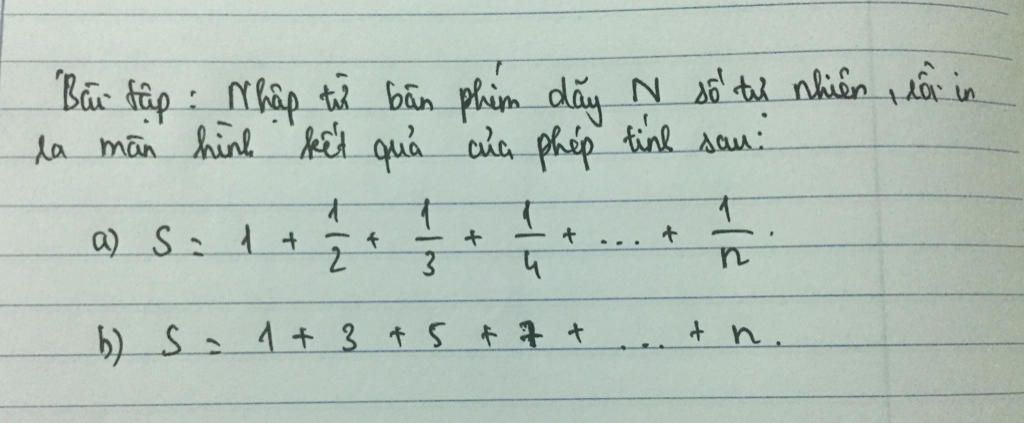 Bài tập : Nhập từ bàn phím dãy N số tự nhiên, rồi in
ra màn hình kết quả của phép tính sau:
a) S = 1 + 1/2 + 1/3 + 1/4 + ... + 1/n.
b) S = 1 + 3 + 5 + 7 + ... + n.